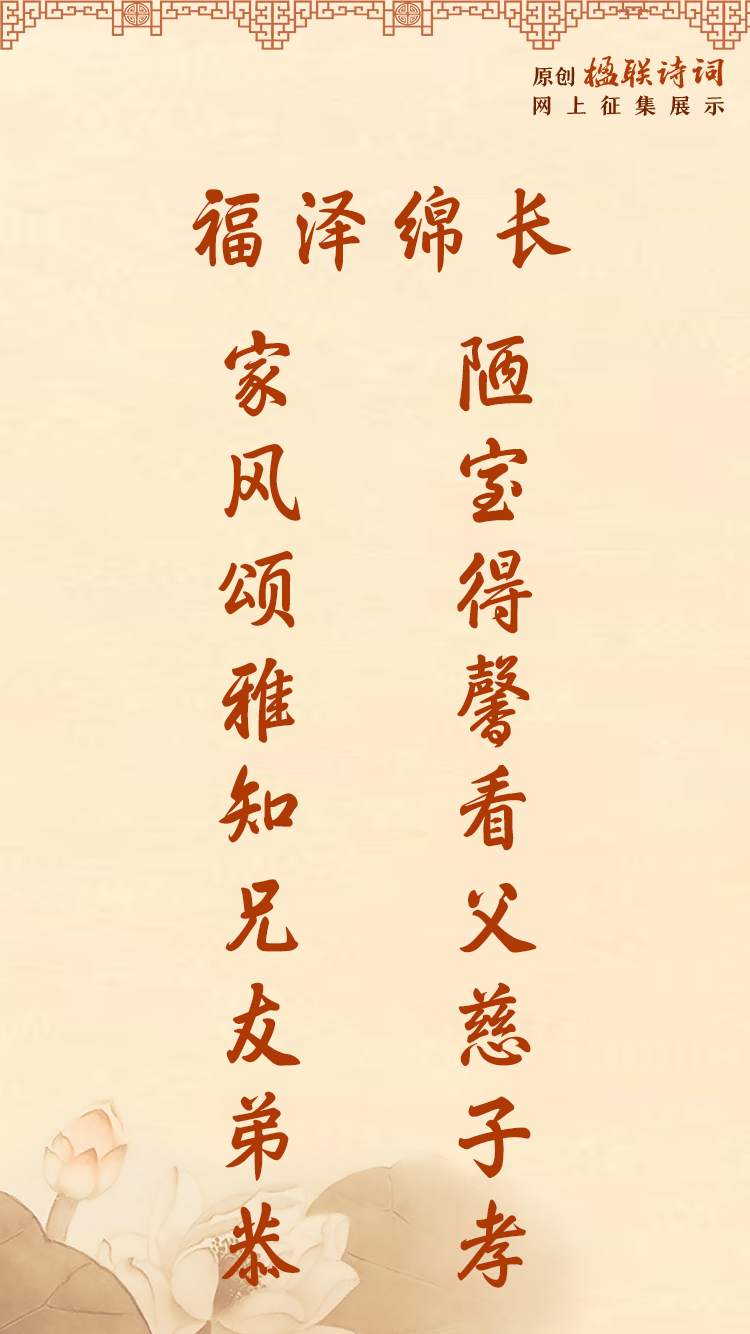 原创 楹联诗词
网上征集展示
福泽绵长
陋室得馨看父慈子孝
家风颂雅知兄友弟恭